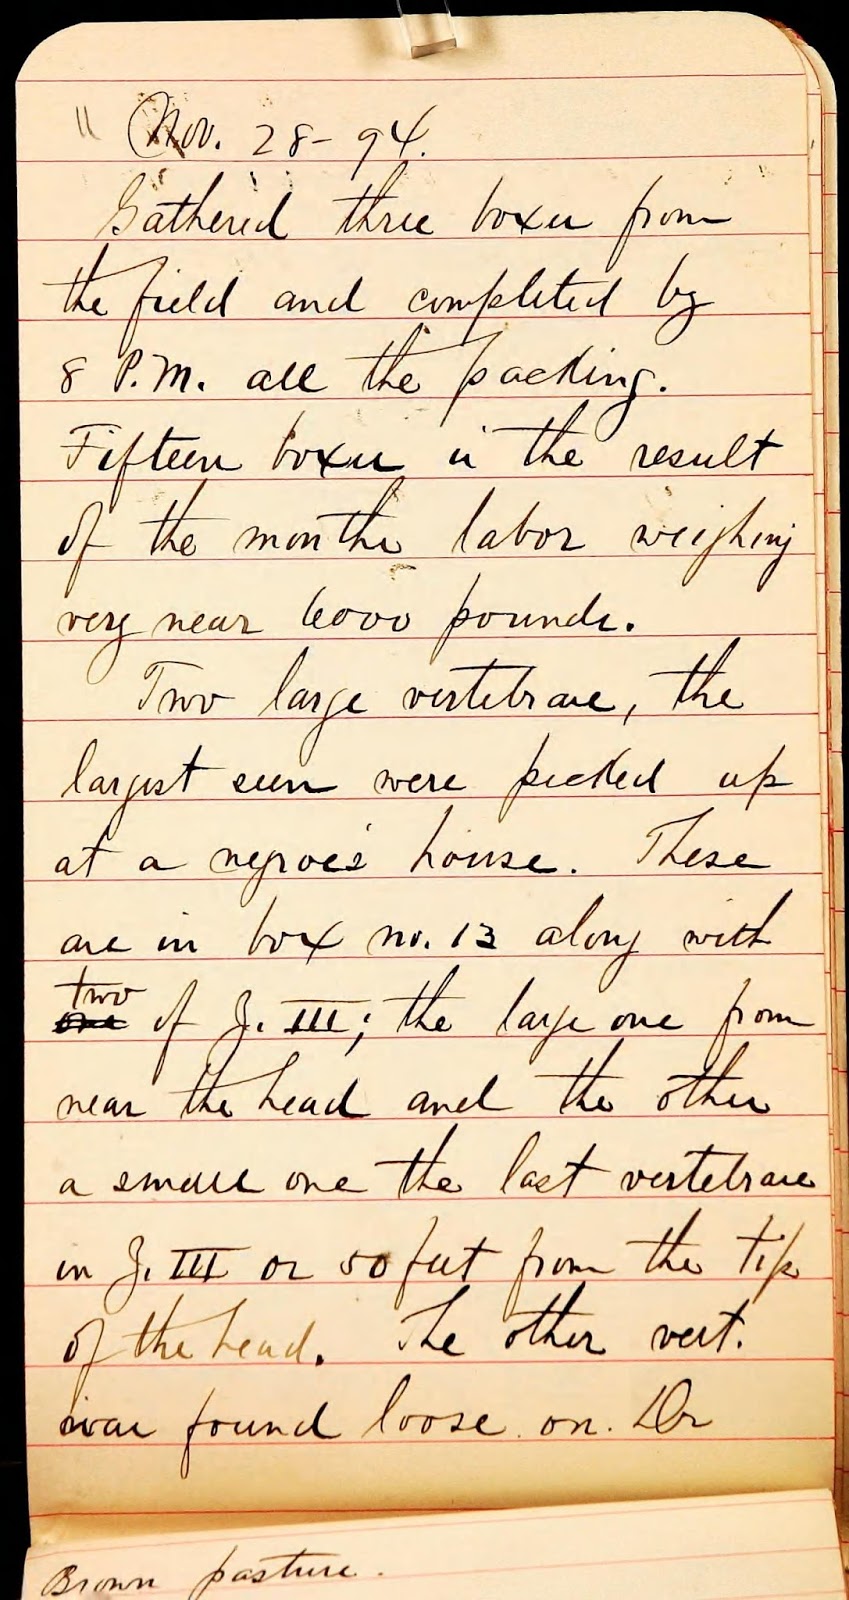 " Nov. 28-94.
Gathered three boxes from
the field and completed by
8 P.M. all the packing.
Fifteen boxes is the result
of the months labor weighing
very near 6000 pounds.
Two large vertebrae, the
largest seen were picked up
at a negroe's house. These
are in box no. 13 along with
two
one of Z. III; the large one from
near the head and the other
a small one the last vertebrae
in Z. III or 50 feet from the tip
of the head. The other vert.
was found loose on Dr
Brown pasture.